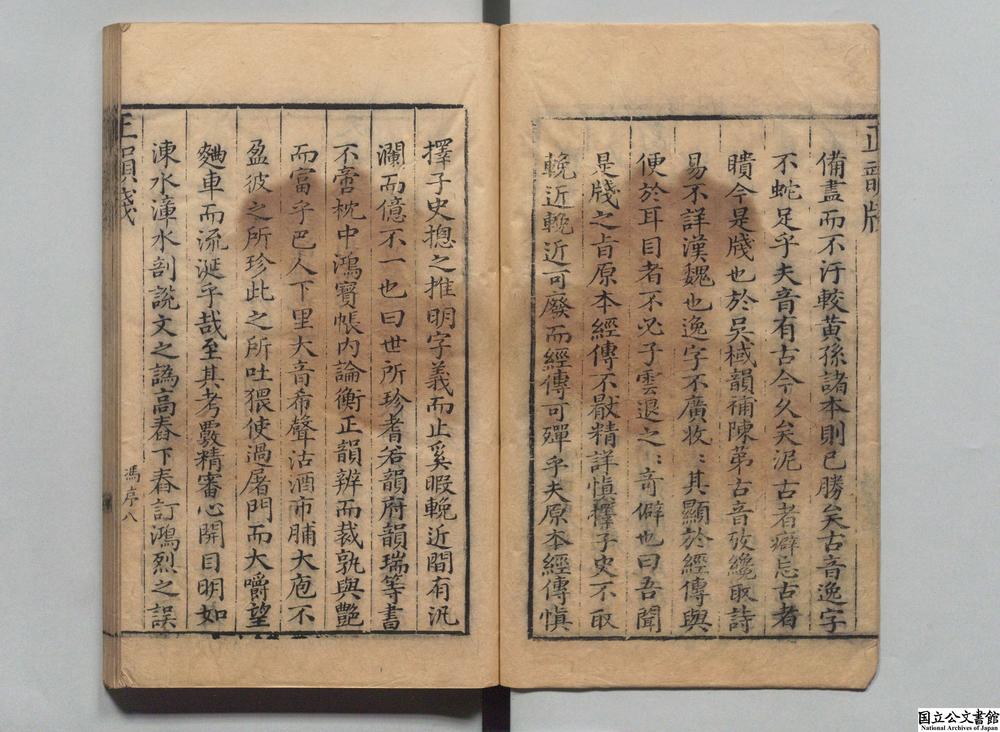 備盡而不汙較黃孫諸本則已勝矣古音逸字
不蛇足乎夫音有古今久矣泥古者癖忌古者
瞶今是牋也於吳棫韻補陳苐古音攷纔取詩
易不詳漢魏也逸字不廣收〻其顯於經傳與
便於耳目者不必子雲退之〻奇僻也曰吾聞
是牋之旨原本經傳不猒精詳愼擇子史不取
輓近輓近可廢而經傳可殫乎夫原本經傳愼
擇子史揔之推明字義而止奚暇輓近間有汎
瀾而億不一也曰世所珍耆若韻府韻瑞等書
不啻枕中鴻寶帳內論衡正韻辨而裁孰與艷
而富乎巴人下里大音希聲沽酒市脯大庖不
盈彼之所珍此之所吐猥使過屠門而大嚼望
麯車而流涎乎哉至其考覈精審心開目明如
涑水漳水剖說文之譌高舂下舂訂鴻烈之誤
正韻牋
馮序八
国立公文書館
National Archives of Japan